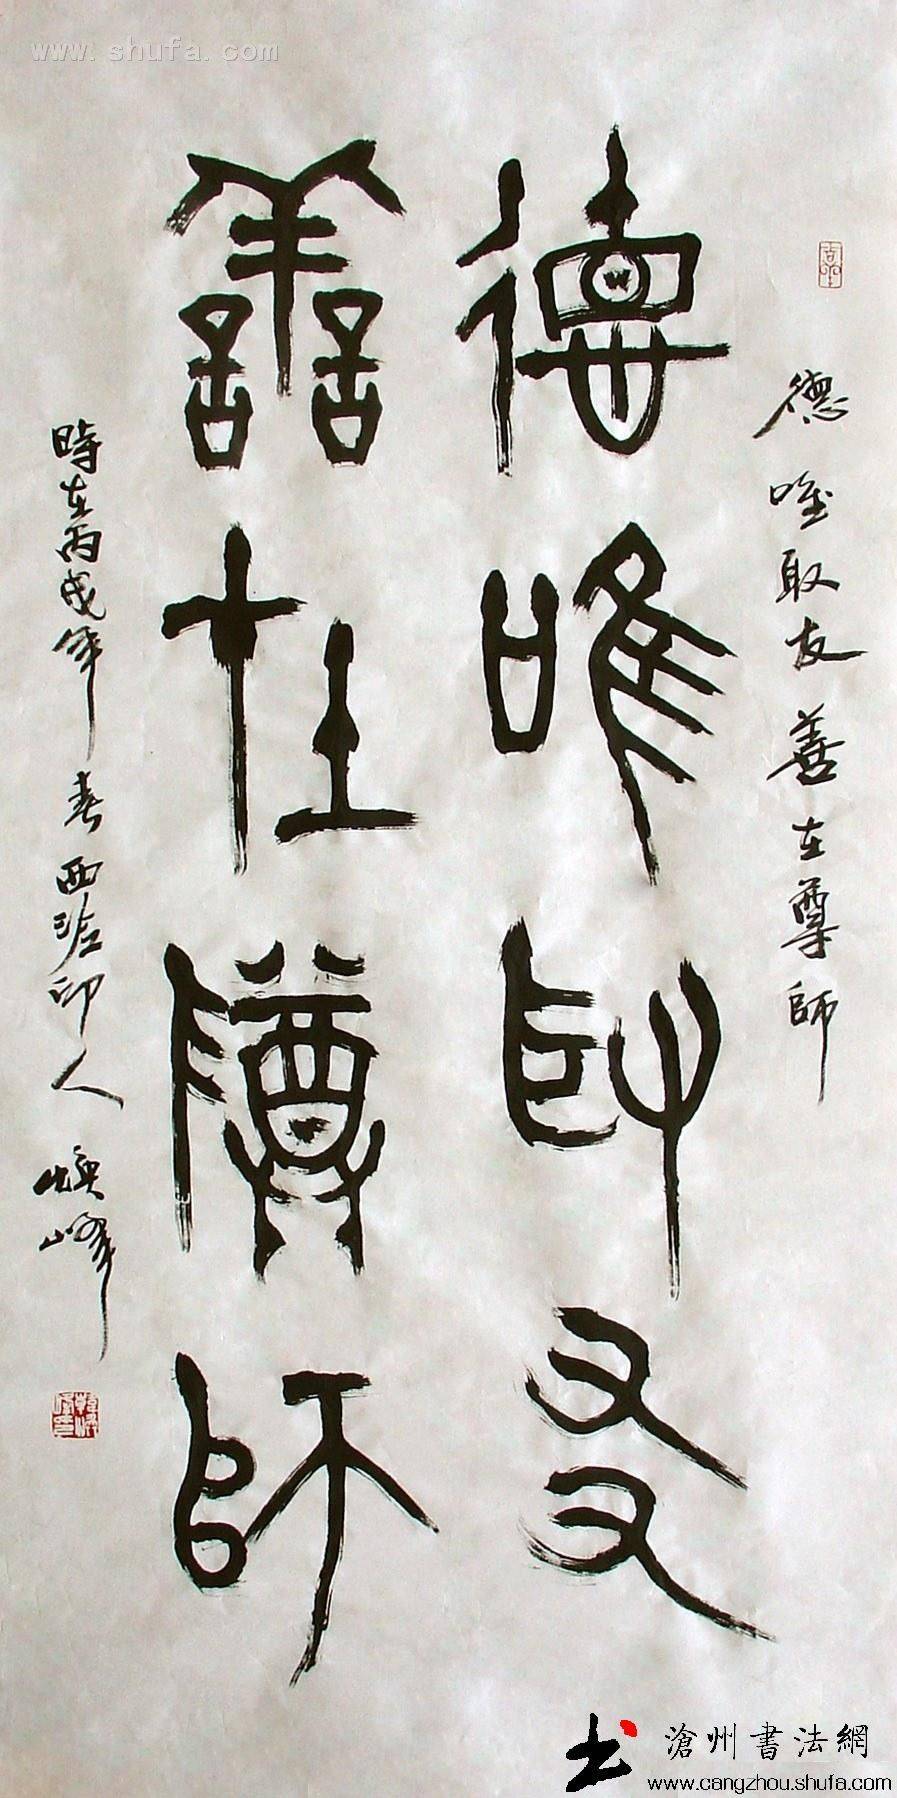 www.shufa.com
德唯取友善在尊師
德唯取友
善在尊師
時在丙戌年春西滄印人煥峰
滄州書法網
www.cangzhou.shufa.com